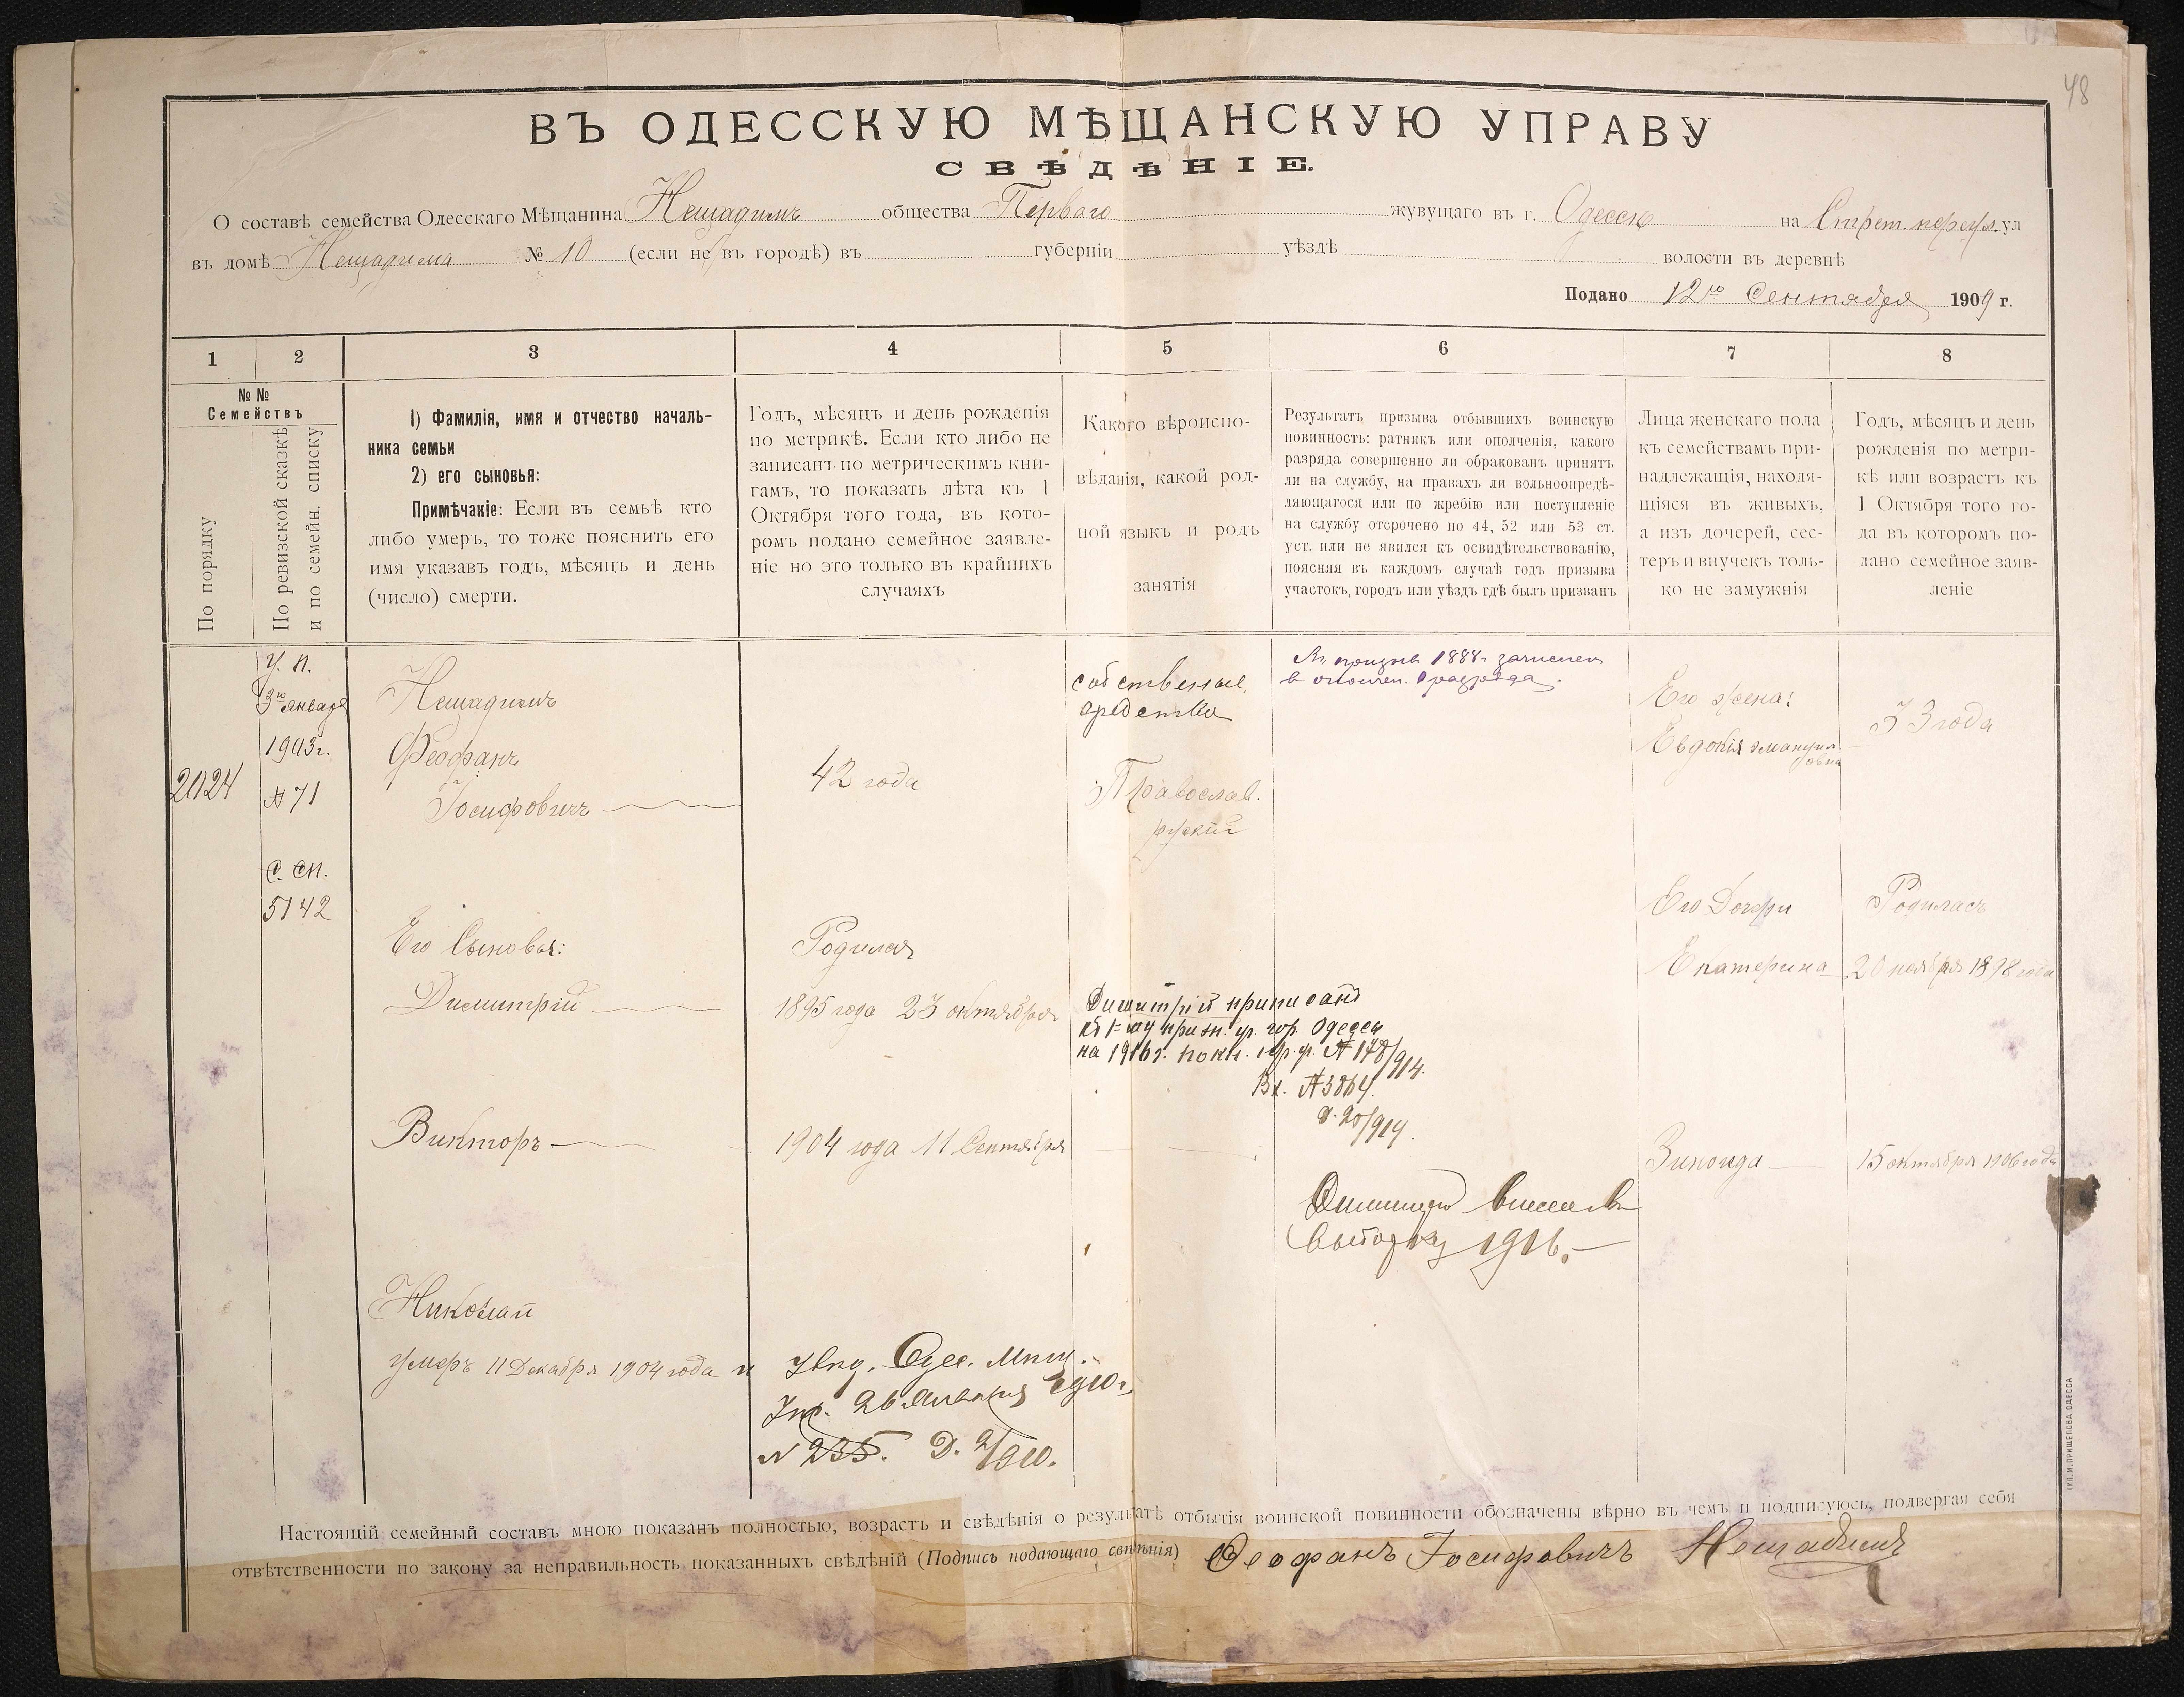 48
ВЪ ОДЕССКУЮ МѢЩАНСКУЮ УПРАВУ
СВѢДѢНІЕ.
О составѣ семейства Одесскаго Мѣщанина Нещадимъ общества Перваго жувущаго въ г. Одессѣ на Стрет. переул. ул
въ домѣ Нещадима № 10 (если не въ городѣ) въ губерніи уѣздѣ волости въ деревнѣ
Подано 12го Сентября 1909 г.
1 2 3 4 5 6 7 8
№ №
Семействъ
По порядку
По ревизской сказкѣ
и по семейн. списку
1) Фамилія, имя и отчество началь-
ника семьи
2) его сыновья:
Примѣчакіе: Если въ семьѣ кто
либо умеръ, то тоже пояснить его
имя указавъ годъ, мѣсяцъ и день
(число) смерти.
Годъ, мѣсяцъ и день рожденія
по метрикѣ. Если кто либо не
записанъ по метрическимъ кни-
гамъ, то показать лѣта къ 1
Октября того года, въ кото-
ромъ подано семейное заявле-
ніе но это только въ крайнихъ
случаяхъ
Какого вѣроиспо-
вѣданія, какой род-
ной языкъ и родъ
занятія
Результатъ призыва отбывшихъ воинскую
повинность: ратникъ или ополченія, какого
разряда совершенно ли обракованъ принятъ
ли на службу, на правахъ ли вольноопредѣ-
ляющагося или по жребію или поступленіе
на службу отсрочено по 44, 52 или 53 ст.
уст. или не явился къ освидѣтельствованію,
поясняя въ каждомъ случаѣ годъ призыва
участокъ, городъ или уѣздъ гдѣ былъ призванъ
Лица женскаго пола
къ семействамъ при-
надлежащія, находя-
щіяся въ живыхъ,
а изъ дочерей, сес-
теръ и внучекъ толь-
ко не замужнія
Годъ, мѣсяцъ и день
рожденія по метри-
кѣ или возрастъ къ
1 Октября того го-
да въ которомъ по-
дано семейное заяв-
леніе
2024
У. п.
3го января
1903г.
№ 71
С. сп.
5142
Нещадимъ
Феофанъ
Іосифовичъ
42 года
собственые
средства
Православ.
русскій
Въ призывъ 1888г. зачислен
в ополчен. разряда.
Его жена:
Евдокія Эмануил.
овна
33 года
Его Сыновья:
Родился
Его Дочери
Родилась
Димитрій
1895 года 23 октября
Димитрій приписанъ
къ 1=му призн. уч. гор. Одессы
на 1916г. по кн. пр. уч. № 178/914.
Вх. № 3864.
д. 20/914.
Екатерина
20 ноября 1898 года
Викторъ
1904 года 11 Сентября
Зиноида
15 октября 1906 года
1916.
Николай
умеръ 11 Декабря 1904 года и
Увѣд. Одес. Мѣщ.
Упр. 26 Января 1910г.
№ 235. Д. 2/910.
Настоящій семейный составъ мною показанъ полностью, возрастъ и свѣдѣнія о результатѣ отбытія воинской повинности обозначены вѣрно въ чемъ и подписуюсь, подвергая себя
отвѣтственности по закону за неправильность показанныхъ свѣдѣній (Подпись подающаго свѣдѣнія) Феофанъ Іосифовичъ Нещадимъ
М. ПРИЩЕПОВА ОДЕССА